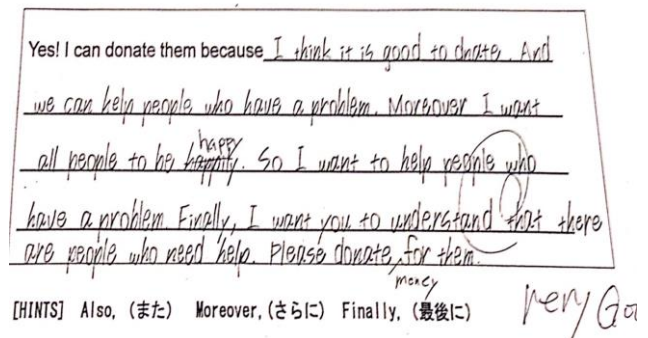 Yes! I can donate them because I think it is good to dnate. And
we can help people who have a problem. Moreover I want
happy
all people to be happily. So I want to help people who
have a problem. Finally, I want you to understand that there
are people who need help. Please donate for them.
money
[HINTS] Also, (また) Moreover, (さらに) Finally, (最後に)
very Goo